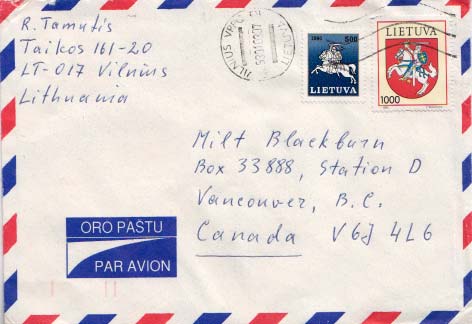 R. Tamutis
Taikos 161-20
LT-017 Vilnius
Lithuania
VILNIUS
1991
500
LIETUVA
LIETUVA
1000
Milt Blackburn
Box 33888, Station D
Vancouver, B.C.
Canada V6J 4L6
ORO PAŠTU
PAR AVION